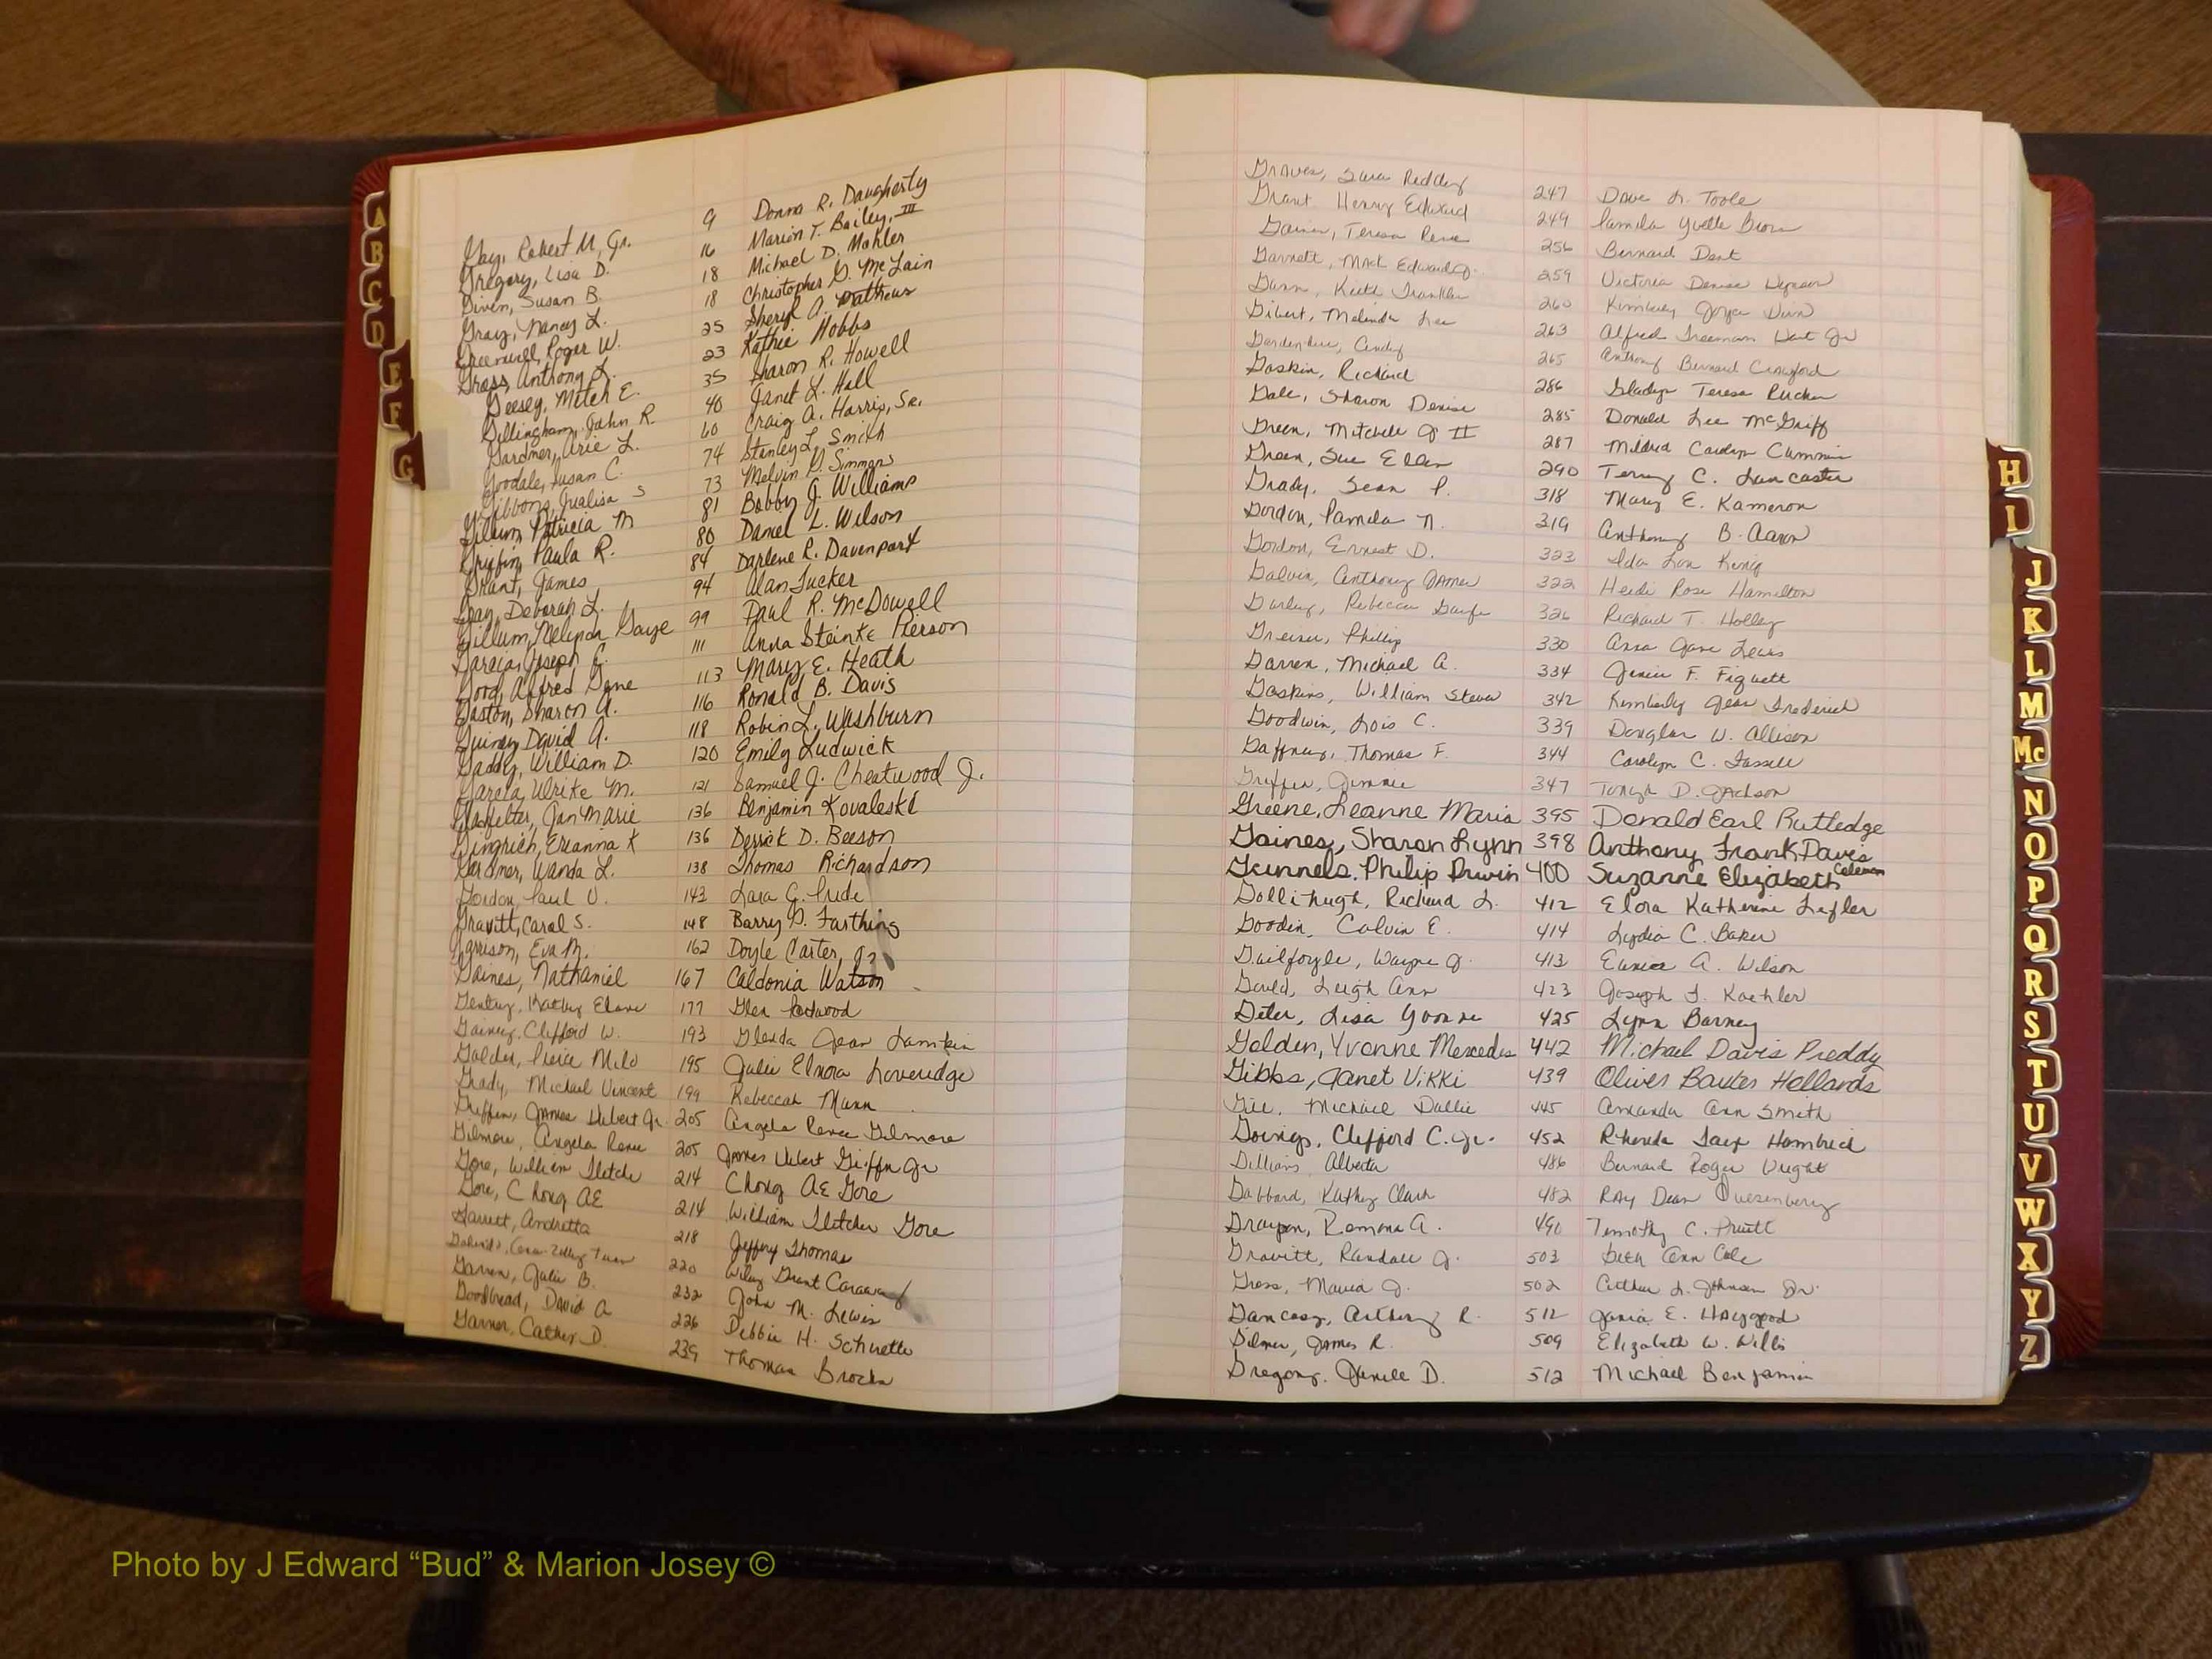 Gay, Robert M, Jr. 9 Donna R. Daugherty
Gregory, Lisa D. 16 Marion T. Bailey, III
Given, Susan B. 18 Michael D. Mahler
Gray, Nancy L. 18 Christopher G. McLain
Greenwell, Roger W. 25 Sheryl A. Mathews
Grass, Anthony L. 23 Kathie Hobbs
Geesey, Mitch E. 35 Sharon R. Howell
Gillingham, John R. 40 Janet L. Hall
Gardner, Arie L. 60 Craig A. Harris, Sr.
Goodale, Susan C. 74 Stanley L. Smith
Gibbons, Jualisa S 73 Melvin D. Simmons
Gilliam, Patricia M 81 Bobby J. Williams
Griffin, Paula R. 80 Daniel L. Wilson
Grant, James 84 Darlene R. Davenport
Gay, Deborah L. 94 Alan Tucker
Gillum, Melinda Gaye 99 Paul R. McDowell
Garcia, Joseph E. 111 Anna Steinke Pierson
Good, Alfred Gene 113 Mary E. Heath
Gaston, Sharon A. 116 Ronald B. Davis
Guiney David A. 118 Robin L. Washburn
Gaddy, William D. 120 Emily Ludwick
Garcia, Ulrike M. 121 Samuel J. Cheatwood Jr.
Jan Marie 136 Benjamin Kovaleski
Gingrich, Erianna K 136 Derrick D. Beeson
Gardner, Wanda L. 138 Thomas Richardson
Gordon, Paul V. 143 Lara G. Pride
Gravitt, Carol S. 148 Barry D. Farthing
Garrison, Eva M. 162 Doyle Carter, Jr
Gaines, Nathaniel 167 Caldonia Watson
Gentry, Kathy Elaine 177 Glen Lockwood
Gainey, Clifford W. 193 Glenda Jean Lamkin
Golden, Pierce Milo 195 Julie Elnora Loveridge
Grady, Michael Vincent 199 Rebeccah Mann
Griffin, James Hubert Jr. 205 Angela Renee Gilmore
Gilmore, Angela Renee 205 James Hubert Griffin Jr
Gore, William Fletcher 214 Chong AE Gore
Gore, Chong AE 214 William Fletcher Gore
Garrett, Andretta 218 Jeffery Thomas
220 Wiley Grant Caraway
Garren, Julie B. 232 John M. Lewis
Goodbread, David A 226 Debbie H. Schuette
Garner, Cathey D. 239 Thomas Brocks
Graves, Sara Redding 247 Dave L. Toole
Grant Henry Edward 249 Pamela Yvette Brown
Gainer, Teresa Renee 256 Bernard Dent
Garnett, Mack Edward Jr. 259 Victoria Denise
Gunn, Keith Franklin 260 Kimberly Joyce Dunn
Gilbert, Melinda Lee 263 Alfred Freeman Hart Jr
Cindy 265 Anthony Bernard Crawford
Gaskin, Richard 286 Gladys Teresa Rucker
Gale, Sharon Denise 285 Donald Lee McGriff
Green, Mitchell J II 287 Mildred Carolyn Cummin
Green, Sue Ellen 290 Terry C. Lancaster
Grady, Sean P. 318 Mary E. Kameron
Gordon, Pamela N. 319 Anthony B. Aaron
Gordon, Ernest D. 323 Ida Lou King
Galvin, Anthony James 322 Heidi Rose Hamilton
Rebecca 326 Richard T. Holley
Greiser, Phillip 330 Anna Jane Lewis
Garren, Michael A. 334 Janice F. Fiquett
Gaskins, William Steven 342 Kimberly Jean Frederick
Goodwin, Lois C. 339 Douglas W. Allison
Gaffney, Thomas F. 344 Carolyn C. Fassell
Griffin, Jimmie 347 Tonya D. Jackson
Greene, Leanne Maria 395 Donald Earl Rutledge
Gaines, Sharon Lynn 398 Anthony Frank Davis
Gunnels, Philip Irwin 400 Suzanne Elizabeth Coleman
Gollihugh, Richard L. 412 Elora Katherine Lefler
Goodin, Calvin E. 414 Lydia C. Baker
Guilfoyle, Wayne J. 413 Eunice A. Wilson
Gould, Leigh Ann 423 Joseph F. Koehler
Geter, Lisa Yvonne 425 Lynn Barney
Golden, Yvonne Mercedes 442 Michael Davis Preddy
Gibbs, Janet Vikki 439 Oliver Baxter Hollands
Gill, Michael Dallie 445 Amanda Ann Smith
Goings, Clifford C. Jr. 452 Rhonda Faye Hambrick
Gillians, Alberta 486 Bernard Roger Wright
Gabbard, Kathy Clark 482 Ray Dean Quesenberry
Grayson, Ramona A. 490 Timothy C. Pruitt
Gravitt, Randall J. 503 Beth Ann Cole
Gross, Maria J. 502 Arthur L. Johnson Jr.
Gancasz, Anthony R. 512 Janie E. Haygood
Gilmer, James R. 509 Elizabeth W. Willis
Gregory, Janelle D. 512 Michael Benjamin
A
B
C
D
E
F
G
H
I
J
K
L
M
Mc
N
O
P
Q
R
S
T
U
V
W
X
Y
Z
Photo by J Edward “Bud” & Marion Josey ©